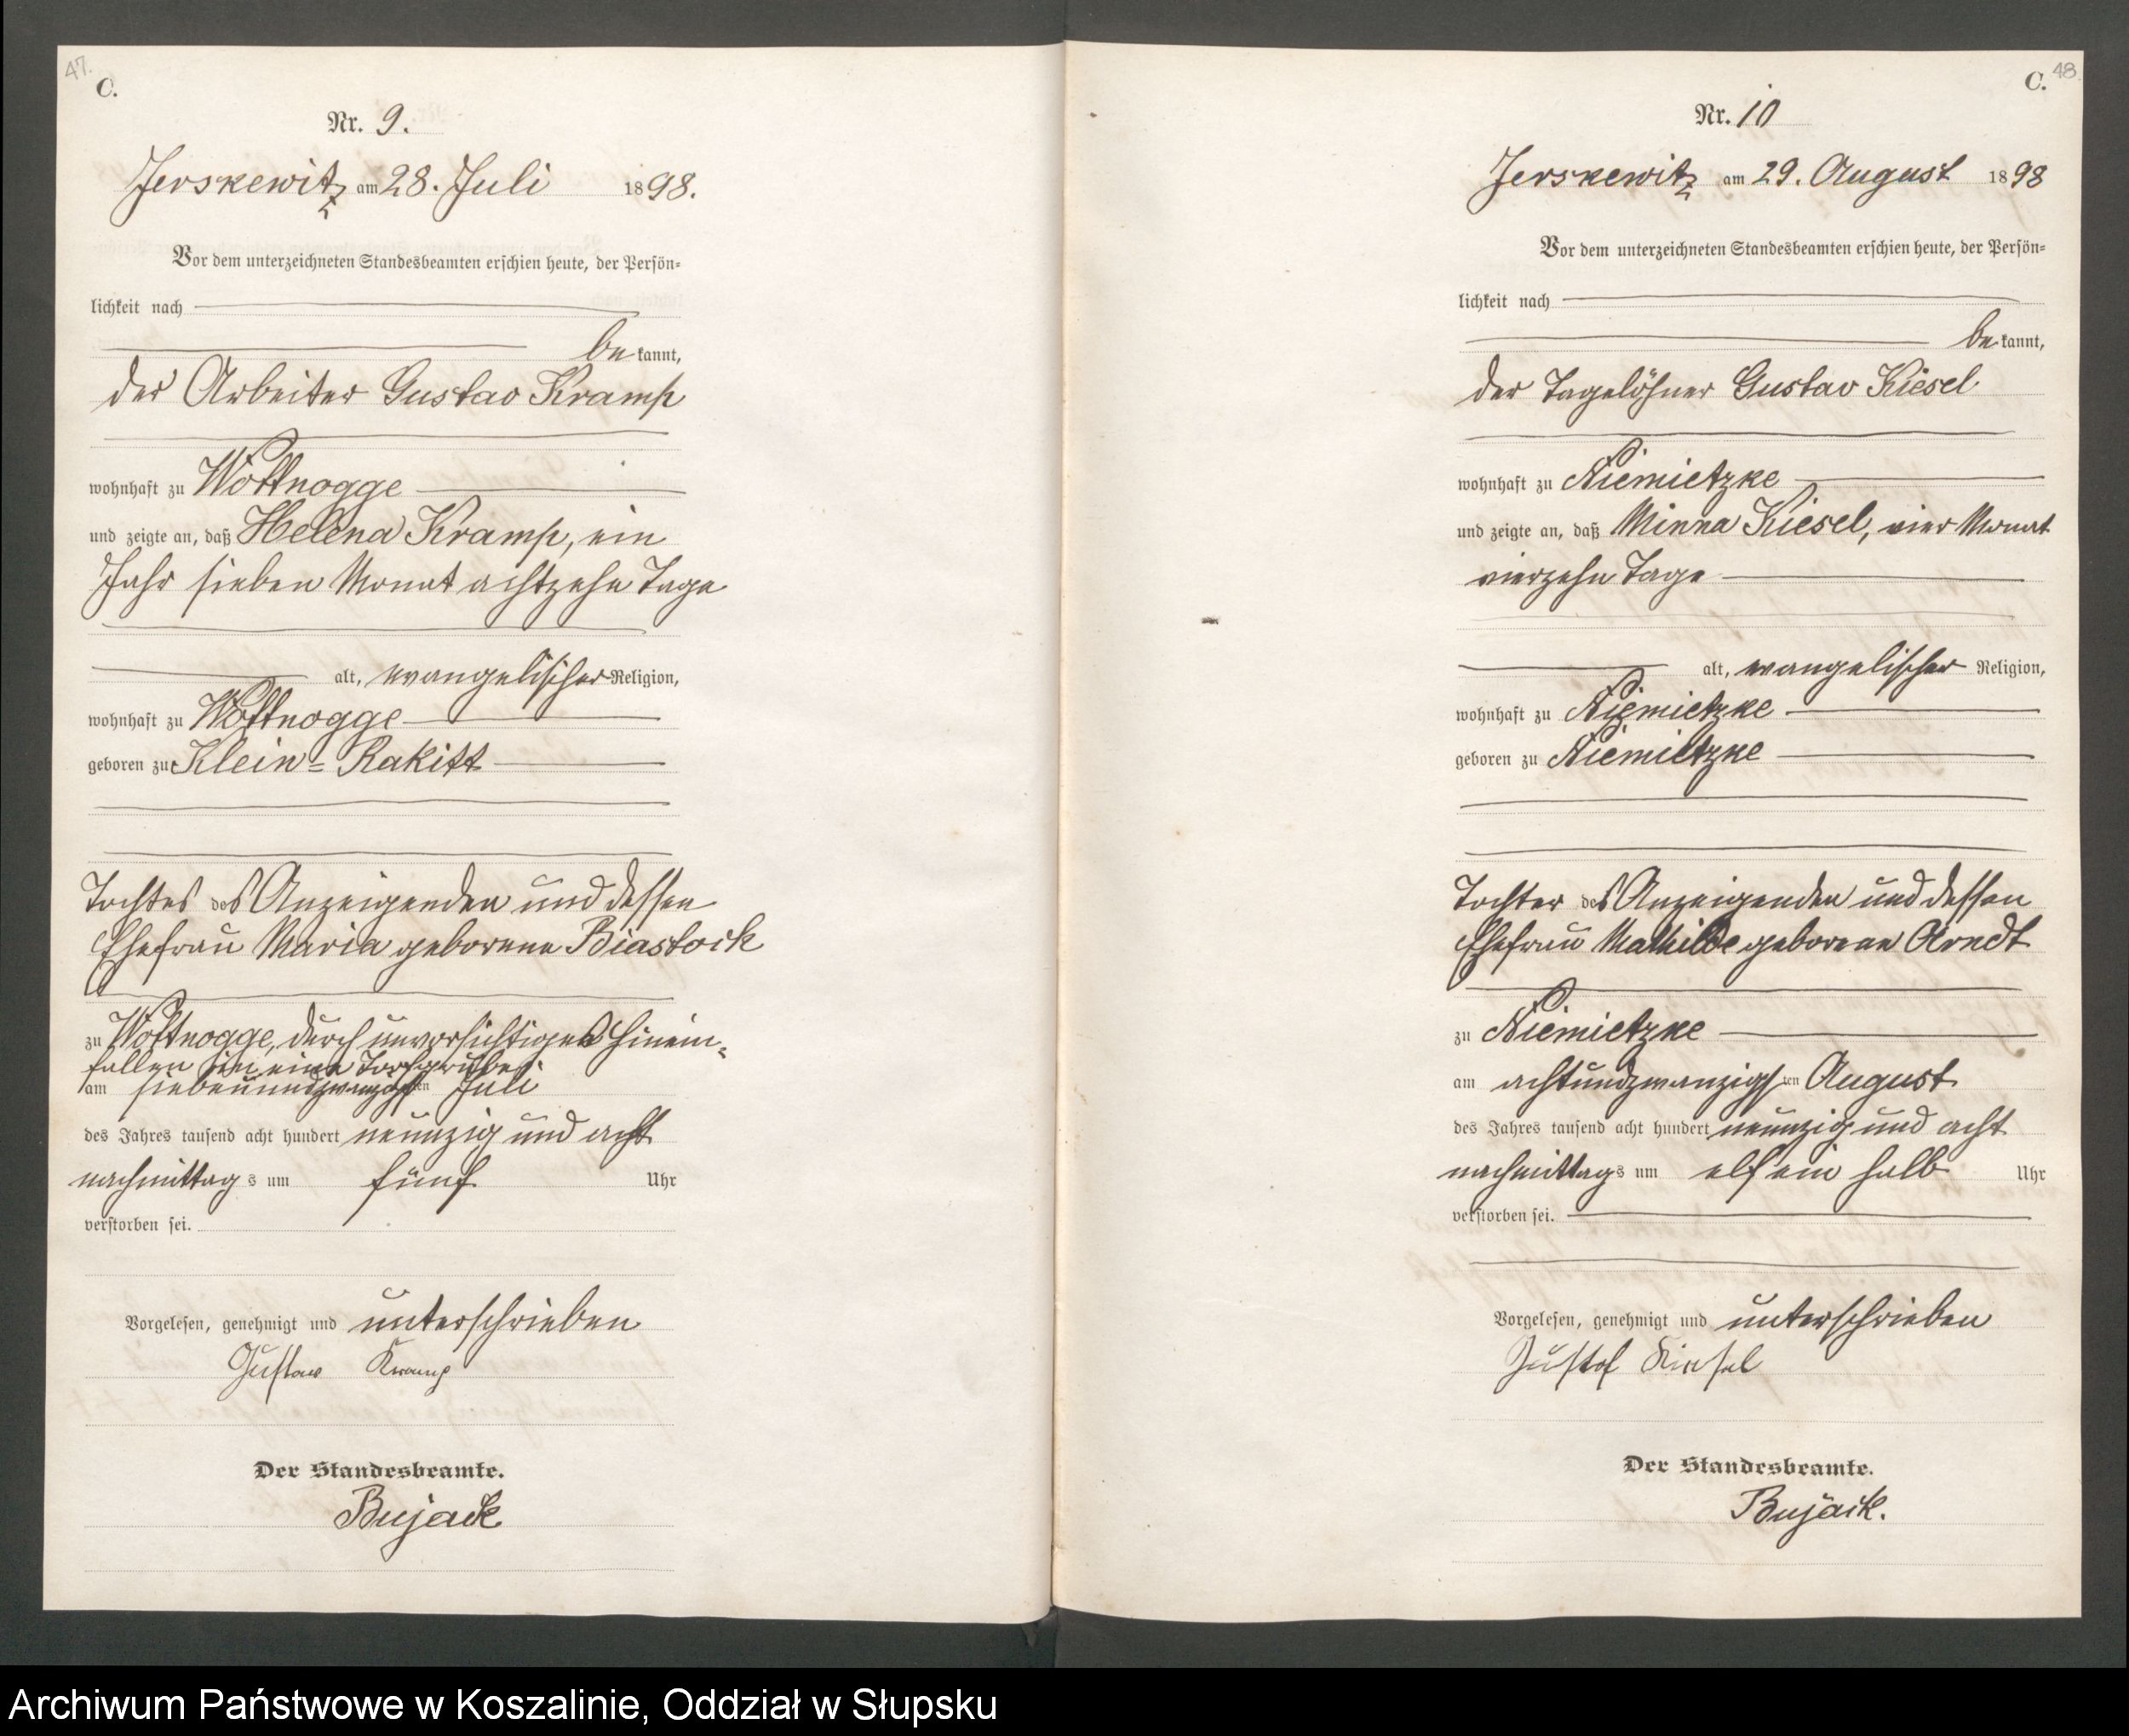 47.
C.
Nr. 9.
Jerskewitz am 28. Juli 1898.
Vor dem unterzeichneten Standesbeamten erschien heute, der Persön-
lichkeit nach
bekannt,
der Arbeiter Gustav Kramp
wohnhaft zu Wottnogge
und zeigte an, daß Helena Kramp, ein
Jahr sieben Monat achtzehn Tage
alt, evangelischer Religion,
wohnhaft zu Wottnogge
geboren zu Klein-Rakitt
Tochter des Anzeigenden und dessen
Ehefrau Maria geborene Biastock
zu Wottnogge, durch unvorsichtiges Hinein-
fallen in eine Torfgrube
am siebenundzwanzigsten Juli
des Jahres tausend acht hundert neunzig und acht
nachmittags um fünf Uhr
verstorben sei.
Vorgelesen, genehmigt und unterschrieben
Gustav Kramp
Der Standesbeamte.
Bujack
48
C.
Nr. 10
Jerskewitz am 29. August 1898
Vor dem unterzeichneten Standesbeamten erschien heute, der Persön-
lichkeit nach
bekannt,
der Tagelöhner Gustav Kiesel
wohnhaft zu Niemietzke
und zeigte an, daß Minna Kiesel, vier Monat
vierzehn Tage
alt, evangelischer Religion,
wohnhaft zu Niemietzke
geboren zu Niemietzke
Tochter des Anzeigenden und dessen
Ehefrau Mathilde geborene Arndt
zu Niemietzke
am achtundzwanzigsten August
des Jahres tausend acht hundert neunzig und acht
nachmittags um elf ein halb Uhr
verstorben sei.
Vorgelesen, genehmigt und unterschrieben
Gustof Kiesel
Der Standesbeamte.
Bujack.
Archiwum Państwowe w Koszalinie, Oddział w Słupsku